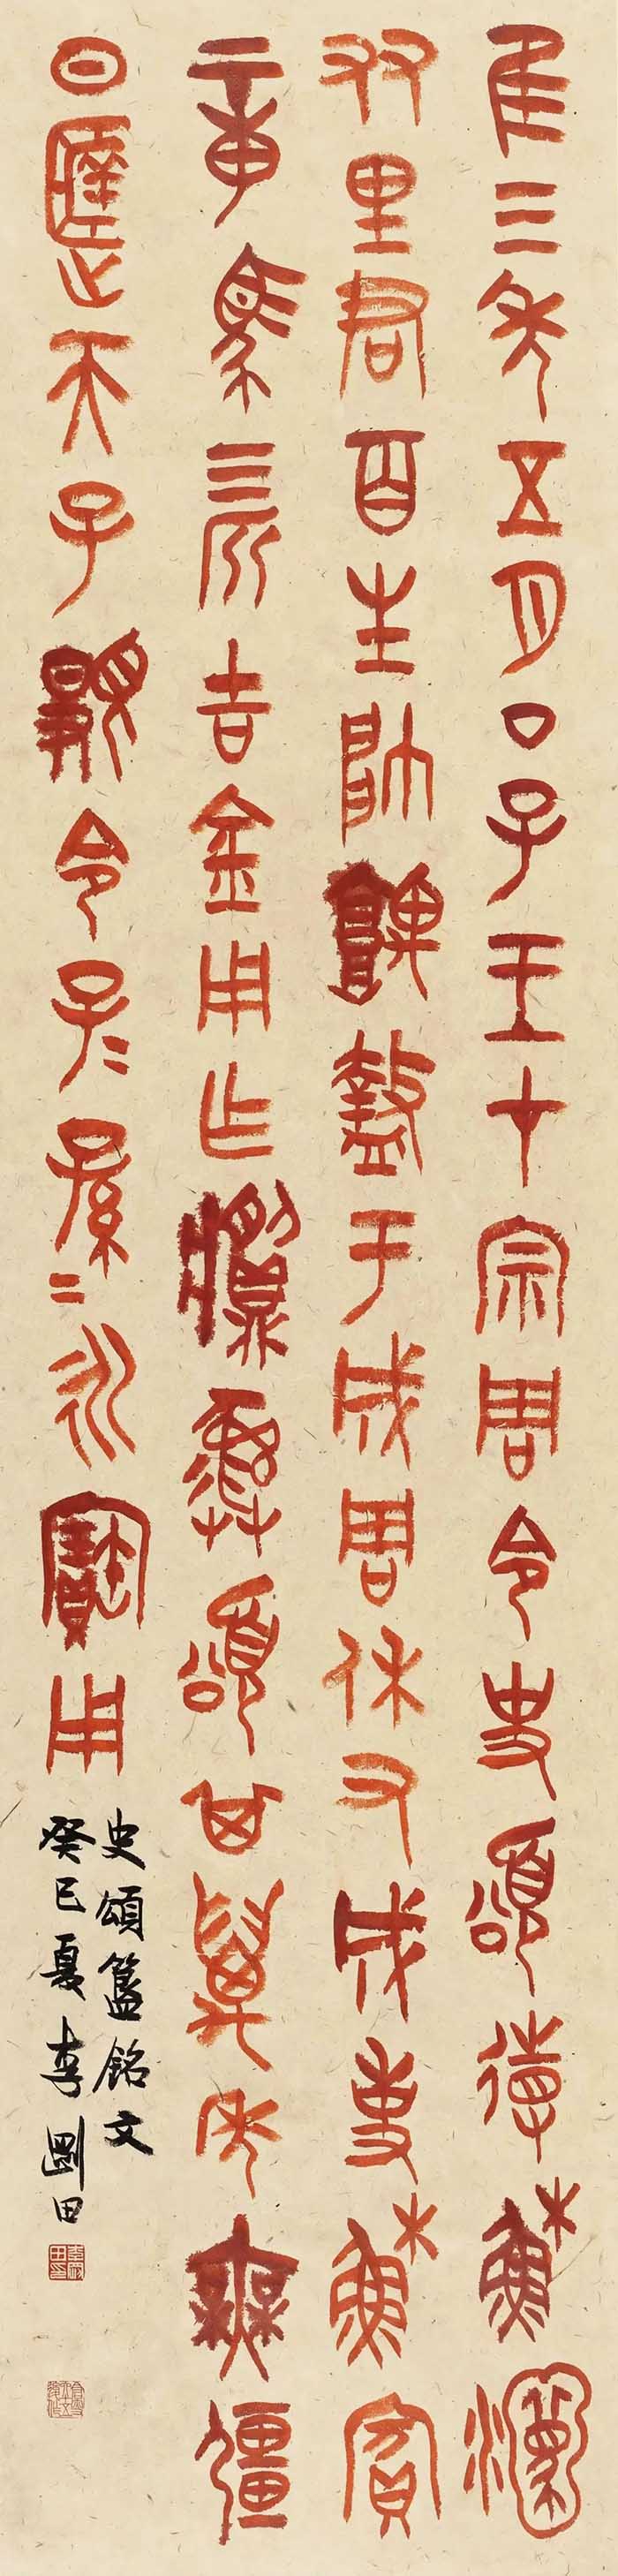 隹三年五月丁子王才宗周令史頌𢓊穌
友里君百生帥盩于成周休又成事穌賓
章馬亖匹吉金用乍䵼彝頌其萬年無疆
日天子顯令子＝孫＝永寶用
史頌簋銘文
癸巳夏李剛田